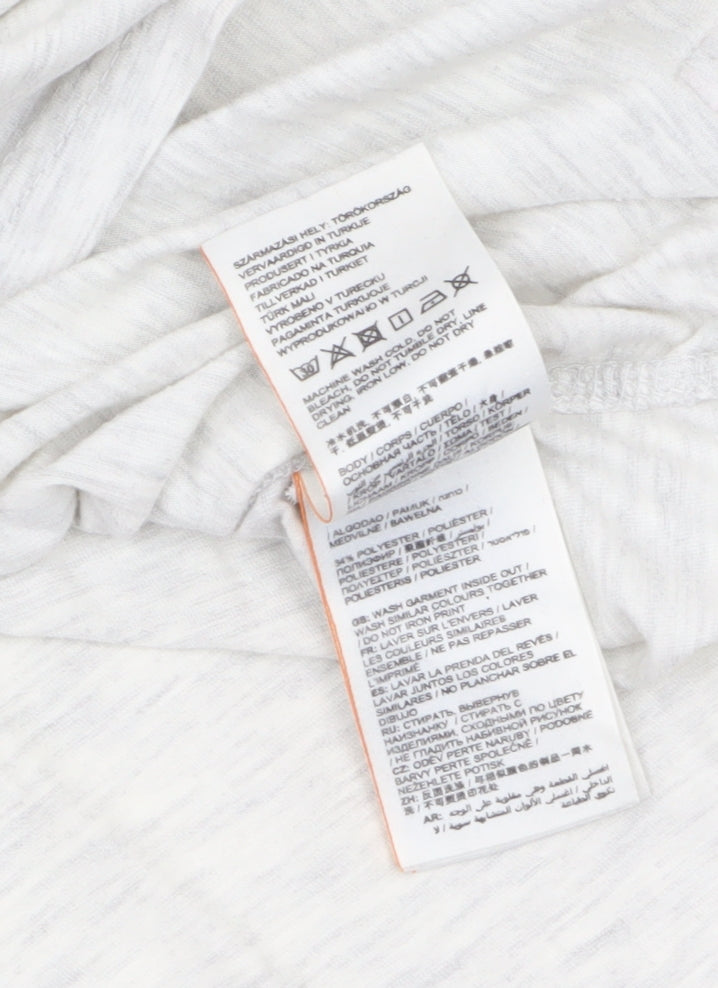 SZÁRMAZÁSI HELY: TÖRÖKORSZÁG
VERVAARDIGD IN TURKIJE
PRODUSERT I TYRKIA
FABRICADO NA TURQUIA
TILLVERKAD I TURKIET
TÜRK MALI
VYROBENO V TURECKU
PAGAMENTA TURKIJOJE
WYPRODUKOWANO W TURCJI
30
MACHINE WASH COLD, DO NOT
BLEACH, DO NOT TUMBLE DRY, LINE
DRYING, IRON LOW, DO NOT DRY
CLEAN
冷水机洗, 不可漂白, 不可翻滚干燥, 悬挂晾
干, 低温熨烫, 不可干洗
BODY / CORPS / CUERPO /
ОСНОВНАЯ ЧАСТЬ / TĚLO / 大身 /
/ TORSO / KÖRPER
/ ALGODÃO / PAMUK /
MEDVILNĖ / BAWEŁNA
POLYESTER / POLIÉSTER /
ПОЛИЭФИР / 聚酯纤维 / بوليستر /
POLIESTERE / POLYESTERI /
ΠΟΛΥΕΣΤΕΡ / POLIÉSZTER / פוליאסטר /
POLIESTERIS / POLIESTER
GB: WASH GARMENT INSIDE OUT /
WASH SIMILAR COLOURS TOGETHER
/ DO NOT IRON PRINT
FR: LAVER SUR L'ENVERS / LAVER
LES COULEURS SIMILAIRES
ENSEMBLE / NE PAS REPASSER
L'IMPRIMÉ
ES: LAVAR LA PRENDA DEL REVÉS /
LAVAR JUNTOS LOS COLORES
SIMILARES / NO PLANCHAR SOBRE EL
DIBUJO
RU: СТИРАТЬ, ВЫВЕРНУВ
НАИЗНАНКУ / СТИРАТЬ С
ИЗДЕЛИЯМИ, СХОДНЫМИ ПО ЦВЕТУ
/ НЕ ГЛАДИТЬ НАБИВНОЙ РИСУНОК
CZ: ODĚV PERTE NARUBY / PODOBNÉ
BARVY PERTE SPOLEČNĚ /
NEŽEHLETE POTISK
ZH: 反面洗涤 / 与相似颜色的制品一同水
洗 / 不可熨烫印花处
AR: اغسلي القطعة وهي مقلوبة على الوجه
الداخلي / اغسلي الألوان المتشابهة سوية / لا